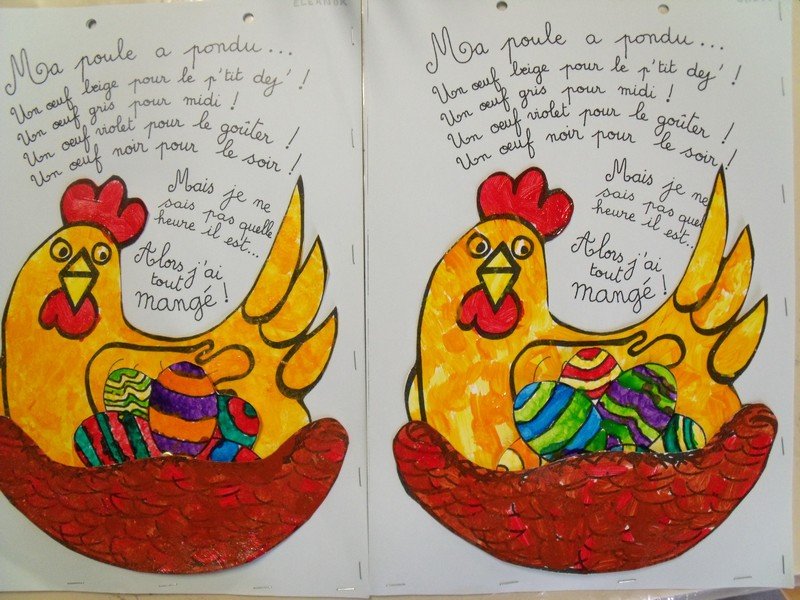 ELEANOR
Ma poule a pondu...
Un œuf beige pour le p'tit dej' !
Un œuf gris pour midi !
Un œuf violet pour le goûter !
Un œuf noir pour le soir !
Mais je ne
sais pas quelle
heure il est...
Alors j'ai
tout
mangé !
Ma poule a pondu...
Un œuf beige pour le p'tit dej' !
Un œuf gris pour midi !
Un œuf violet pour le goûter !
Un œuf noir pour le soir !
Mais je ne
sais pas quel
heure il est...
Alors j'ai
tout
mangé !